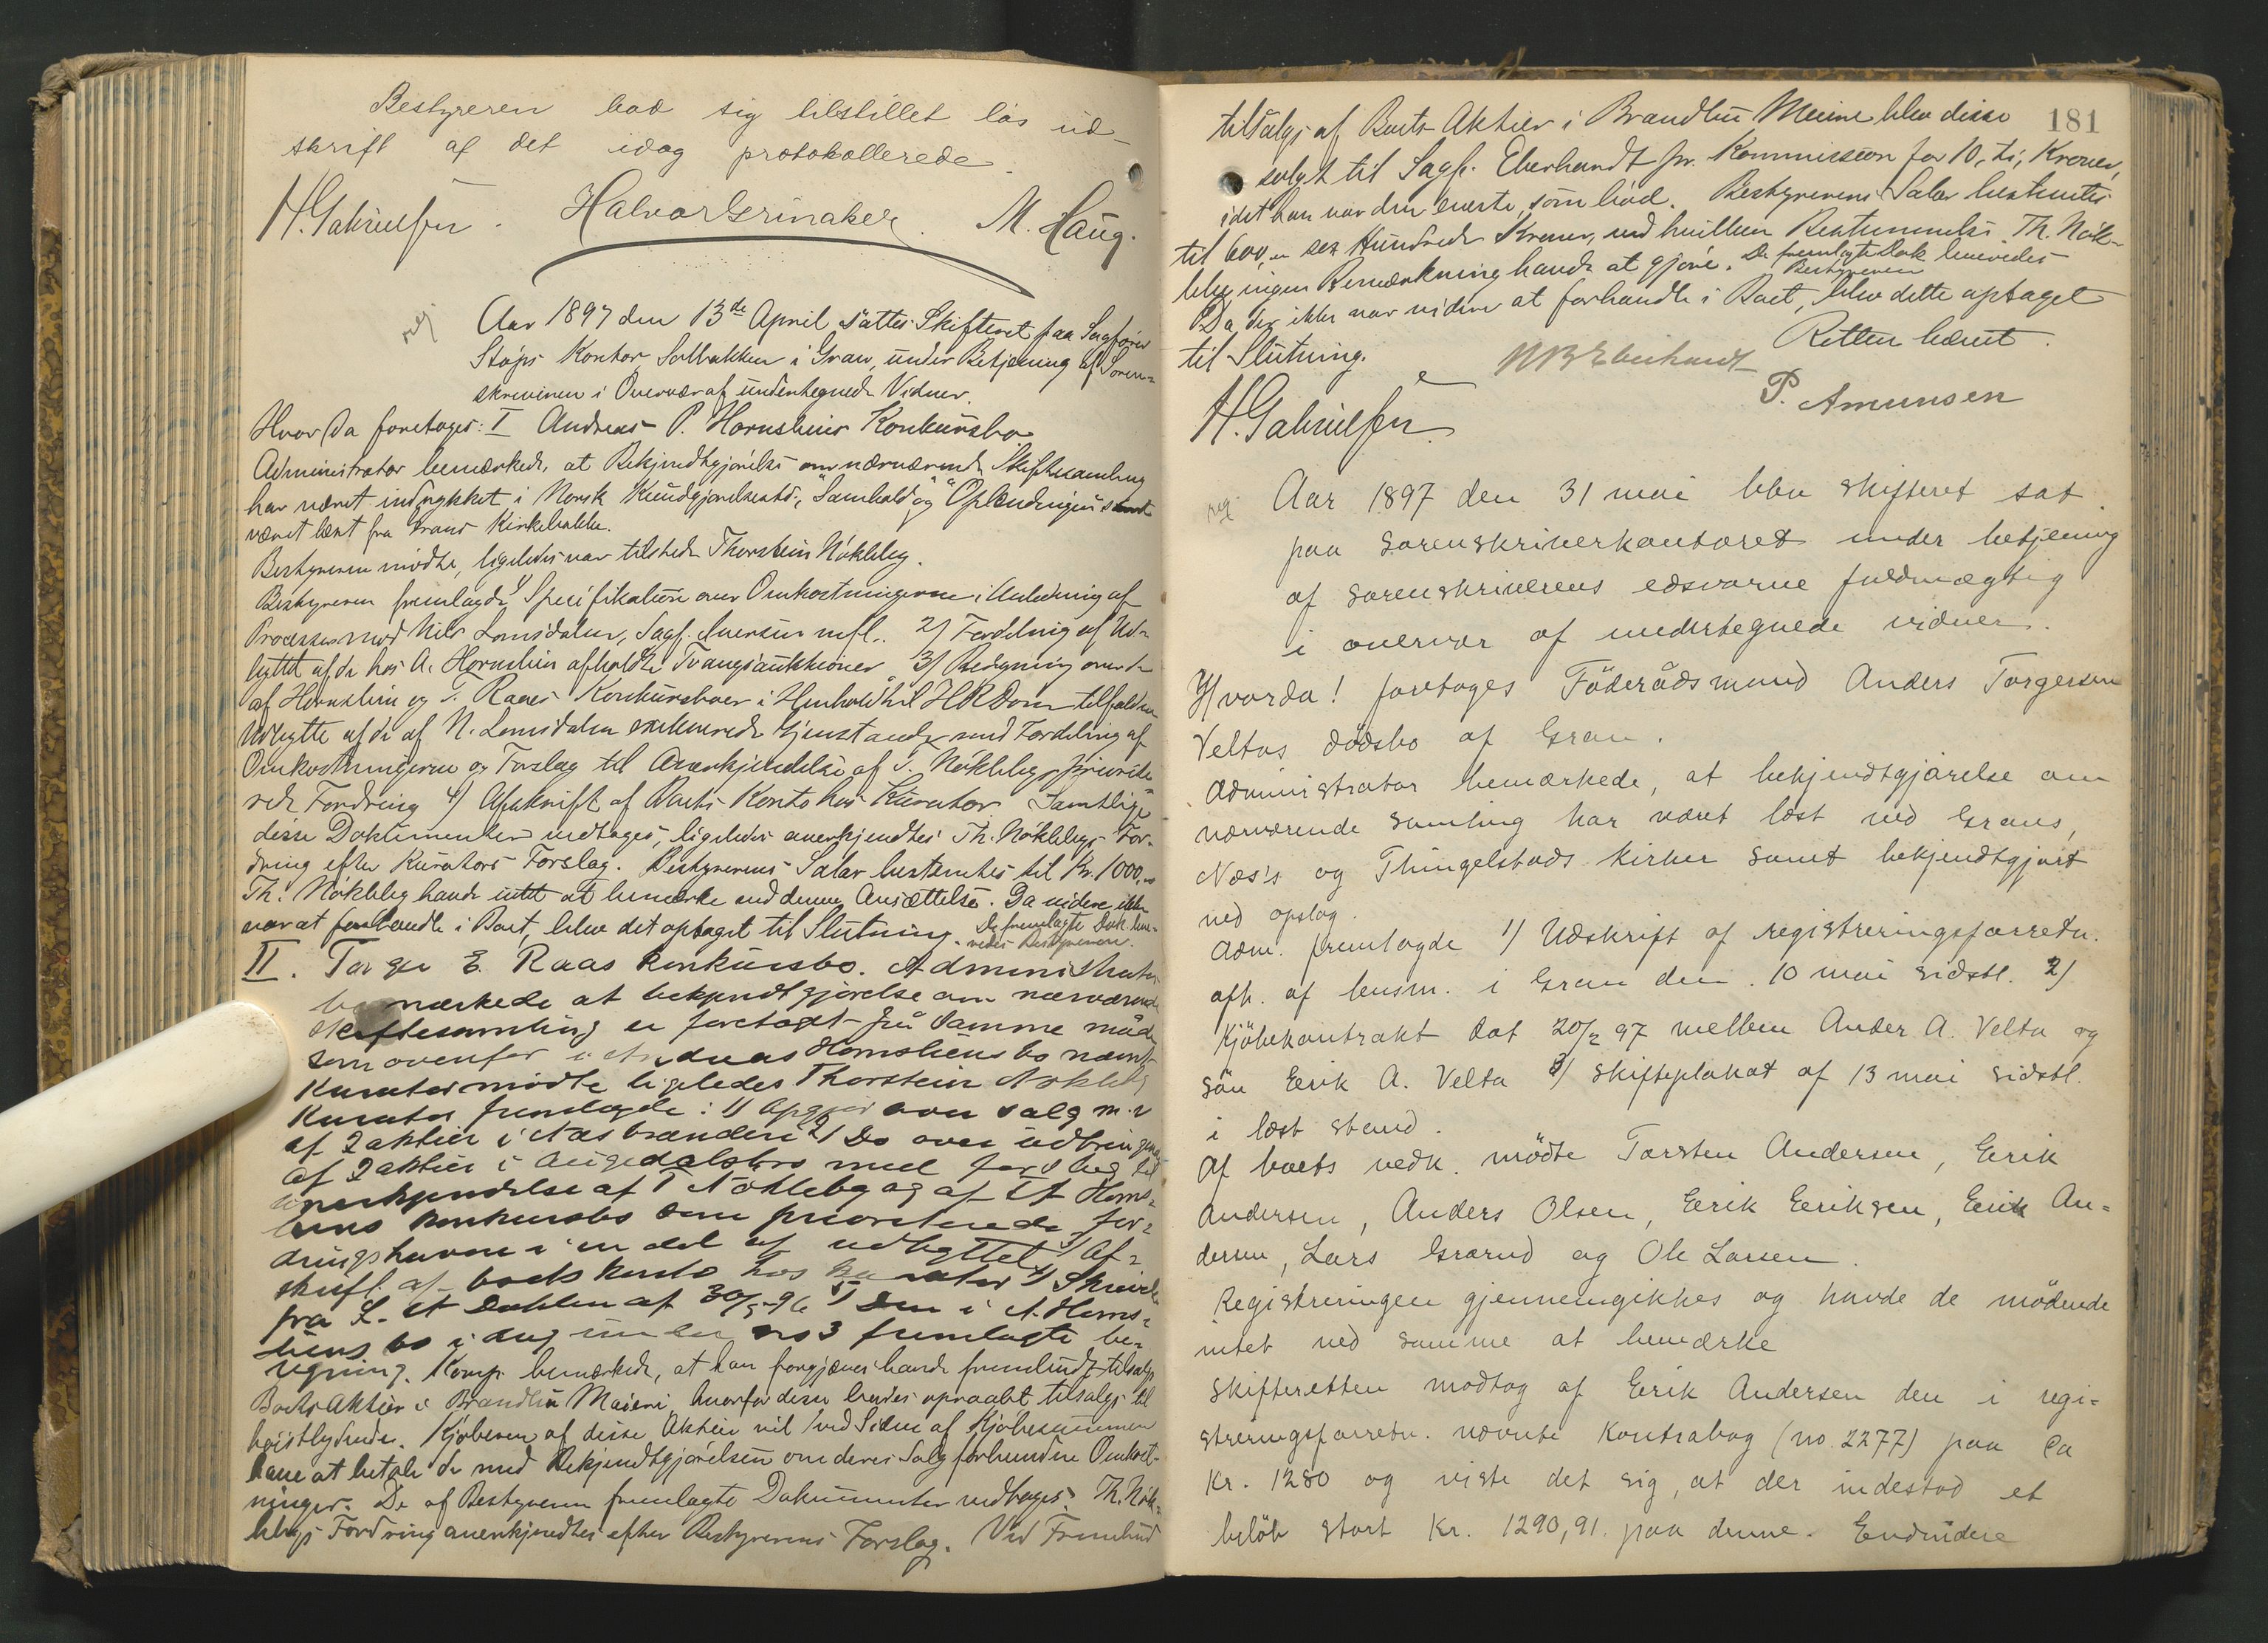 Bestyreren bad sig tilstillet løs ud-
skrift af det idag protokollerede.
H. Gabrielsen. Halvor Grinaker. M. Haug.
reg
Aar 1897 den 13de April sattes Skifteret paa Sagfører
Støps Kontor, Solbakken i Gran, under Betjening af Soren-
skriveren i Overvær af undertegnede Vidner.
Hvor da foretoges: I Andreas P. Hornsliens Konkursbo
Administrator bemærkede, at Bekjendtgjørelse om nærværende Skiftesamling
har været indrykket i Norsk Kundgjørelsestid., "Samhold" og "Oplendingen" samt
været læst fra Grans Kirkebakke.
Bestyreren mødte, ligeledes var tilstede Thorstein Nökleby.
Bestyreren fremlagde 1) Specifikation over Omkostningerne i Anledning af
Processen mod Nils Lomsdalen, Sagf. Iversen mfl. 2) Fordeling af Ud-
byttet af de hos A. Hornslien afholdte Tvangsauktioner 3) Beregning over de
af Hornslien og T. Raaes Konkursboer i Henhold til HR Dom tilfaldne
Udbytte af de af N. Lomsdalen exekverede Gjenstande med Fordeling af
Omkostningerne og Forslag til Anerkjendelse af T. Nöklebys priorite-
rede Fordring 4) Afskrift af Boets Konto hos Kurator. Samtlige
disse Dokumenter vedtoges, ligeledes anerkjendtes Th. Nöklebys For-
dring efter Kurators Forslag. Bestyrerens Salær bestemtes til Kr. 1000,00
Th. Nökleby havde intet at bemærke ved denne Ansættelse. Da videre ikke
var at forhandle i Boet, blev det optaget til Slutning. De fremlagte Dok. bero-
vedes Bestyreren.
II. Torger E. Raas konkursbo. Administrator
bemærkede at bekjendtgjørelse om nærværende
skiftesamling er foretaget på samme måde
som ovenfor i Andreas Hornsliens bo nævnt
Kurator mødte ligeledes Thorstein Nökleby
Kurator fremlagde: 1) Opgjør over salg m.v
af 2 aktier i Næs brænderi 2) Do over udbringende
af 2 aktier i Augedalsbro med forslag til
anerkjendelse af T Nökleby og af A Horns-
liens konkursbo som prioriterede for-
dringshavere i en del af udbyttet 3) Af-
skrift af boets konto hos kurator 4) Skrivelse
fra L. A Dahlen af 30/5 96 5) Den i A. Horns-
liens bo i dag under no 3 fremlagte be-
regning. Komp. bemærkede, at han forgjæves havde frembudt tilsalgs
Boets Aktier i Brandbu Meieri, hvorfor disse burdes opraabt tilsalgs til
høistbydende. Kjøberen af disse Aktier vil ved Siden af Kjøbesummen
have at betale de med Bekjendtgjørelsen om deres Salg forbundne Omkost-
ninger. De af Bestyreren fremlagte Dokumenter vedtoges. Th. Nök-
lebys Fordring anerkjendtes efter Bestyrerens Forslag. Ved Frembud
181
tilsalgs af Boets Aktier i Brandbu Meieri blev disse
solgt til Sagf. Eberhardt pr. Kommission for 10, ti, Kroner,
idet han var den eneste, som bød. Bestyrerens Salær bestemtes
til 600,00 sex Hundrede Kroner, ved hvilken Bestemmelse Th. Nök-
leby ingen Bemærkning havde at gjøre. De fremlagte Dok. berovedes
Bestyreren
Da der ikke var videre at forhandle i Boet, blev dette optaget
til Slutning.
Retten hævet.
H. Gabrielsen NB Eberhardt P. Amunsen
reg
Aar 1897 den 31 mai blev skifteret sat
paa sorenskriverkontoret under betjening
af sorenskriverens edsvorne fuldmægtig
i overvær af undertegnede vidner.
Hvorda! foretoges Föderådsmand Anders Torgersen
Veltas dödsbo af Gran.
Administrator bemærkede, at bekjendtgjørelse om
nærværende samling har været læst ved Grans,
Næs's og Thingelstads kirker samt bekjendtgjort
ved opslag.
Adm. fremlagde 1) Udskrift af registreringsforretn.
afh. af lensm. i Gran den 10 mai sidstl. 2)
Kjöbekontrakt dat 20/2 97 mellem Ander A. Velta og
sön Erik A. Velta 3) skifteplakat af 13 mai sidstl.
i læst stand.
Af boets vedk. mödte Torsten Andersen, Erik
Andersen, Anders Olsen, Erik Eriksen, Erik An-
dersen, Lars Grærud og Ole Larsen.
Registreringen gjennemgikkes og havde de mödende
intet ved samme at bemærke
Skifteretten modtog af Erik Andersen den i regi-
streringsforretn. nævnte Kontrabog (no. 2277) paa Ca
Kr. 1280 og viste det sig, at der indestod et
belöb stort Kr. 1290,91. paa denne. Endvidere